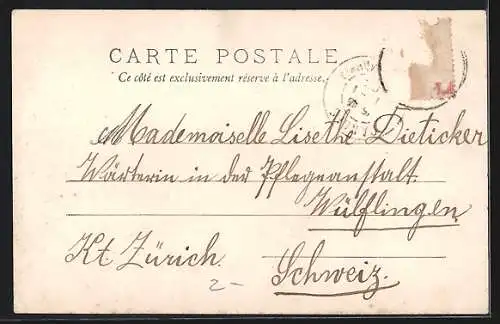 CARTE POSTALE
Ce côté est exclusivement réservé à l'adresse.
Mademoiselle Lisethe Dieticker
Wärterin in der Pflegeanstalt.
Wülflingen
Kt. Zürich.
Schweiz.
2-